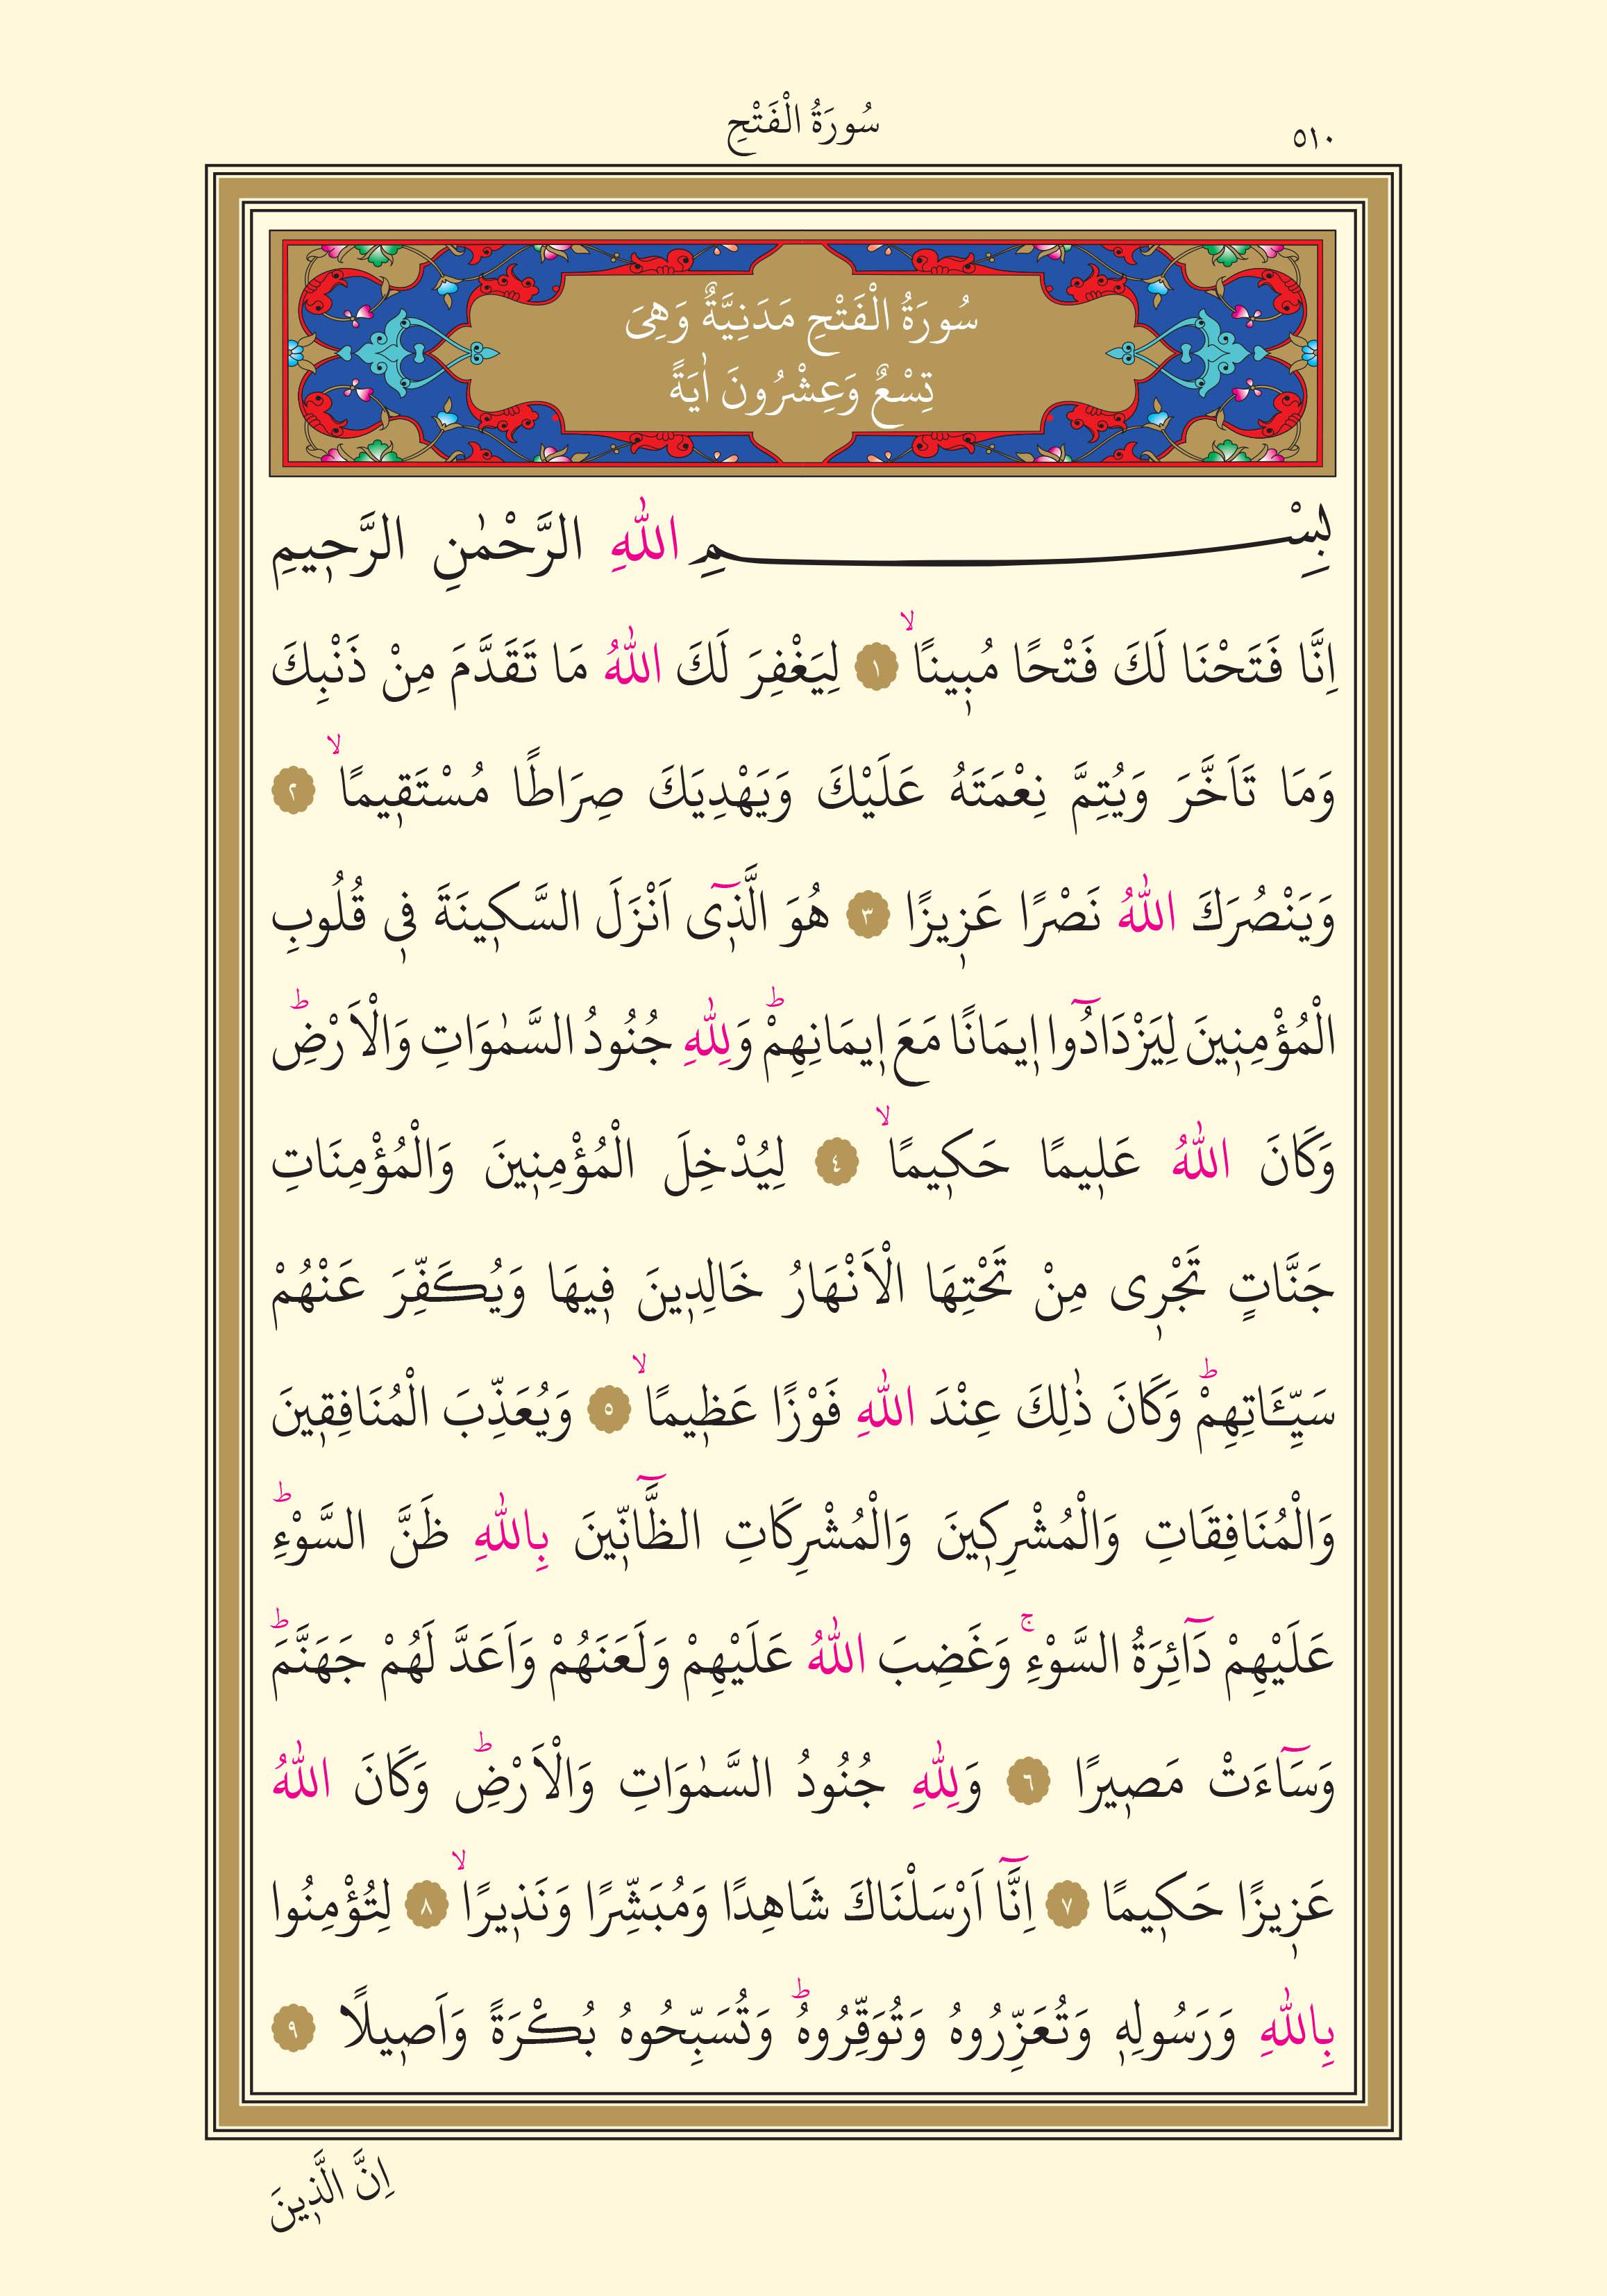 ٥١٠
سُورَةُ الْفَتْحِ
سُورَةُ الْفَتْحِ مَدَنِيَّةٌ وَهِىَ
تِسْعٌ وَعِشْرُونَ اٰيَةً
بِسْمِ اللّٰهِ الرَّحْمٰنِ الرَّحٖيمِ
اِنَّا فَتَحْنَا لَكَ فَتْحًا مُبٖينًاۙ ١ لِيَغْفِرَ لَكَ اللّٰهُ مَا تَقَدَّمَ مِنْ ذَنْبِكَ
وَمَا تَاَخَّرَ وَيُتِمَّ نِعْمَتَهُ عَلَيْكَ وَيَهْدِيَكَ صِرَاطًا مُسْتَقٖيمًاۙ ٢
وَيَنْصُرَكَ اللّٰهُ نَصْرًا عَزٖيزًا ٣ هُوَ الَّذٖٓى اَنْزَلَ السَّكٖينَةَ فٖى قُلُوبِ
الْمُؤْمِنٖينَ لِيَزْدَادُٓوا اٖيمَانًا مَعَ اٖيمَانِهِمْؕ وَلِلّٰهِ جُنُودُ السَّمٰوَاتِ وَالْاَرْضِؕ
وَكَانَ اللّٰهُ عَلٖيمًا حَكٖيمًاۙ ٤ لِيُدْخِلَ الْمُؤْمِنٖينَ وَالْمُؤْمِنَاتِ
جَنَّاتٍ تَجْرٖى مِنْ تَحْتِهَا الْاَنْهَارُ خَالِدٖينَ فٖيهَا وَيُكَفِّرَ عَنْهُمْ
سَيِّـَٔاتِهِمْؕ وَكَانَ ذٰلِكَ عِنْدَ اللّٰهِ فَوْزًا عَظٖيمًاۙ ٥ وَيُعَذِّبَ الْمُنَافِقٖينَ
وَالْمُنَافِقَاتِ وَالْمُشْرِكٖينَ وَالْمُشْرِكَاتِ الظَّٓانّٖينَ بِاللّٰهِ ظَنَّ السَّوْءِؕ
عَلَيْهِمْ دَٓائِرَةُ السَّوْءِۚ وَغَضِبَ اللّٰهُ عَلَيْهِمْ وَلَعَنَهُمْ وَاَعَدَّ لَهُمْ جَهَنَّمَؕ
وَسَٓاءَتْ مَصٖيرًا ٦ وَلِلّٰهِ جُنُودُ السَّمٰوَاتِ وَالْاَرْضِؕ وَكَانَ اللّٰهُ
عَزٖيزًا حَكٖيمًا ٧ اِنَّٓا اَرْسَلْنَاكَ شَاهِدًا وَمُبَشِّرًا وَنَذٖيرًاۙ ٨ لِتُؤْمِنُوا
بِاللّٰهِ وَرَسُولِهٖ وَتُعَزِّرُوهُ وَتُوَقِّرُوهُؕ وَتُسَبِّحُوهُ بُكْرَةً وَاَصٖيلًا ٩
اِنَّ الَّذٖينَ